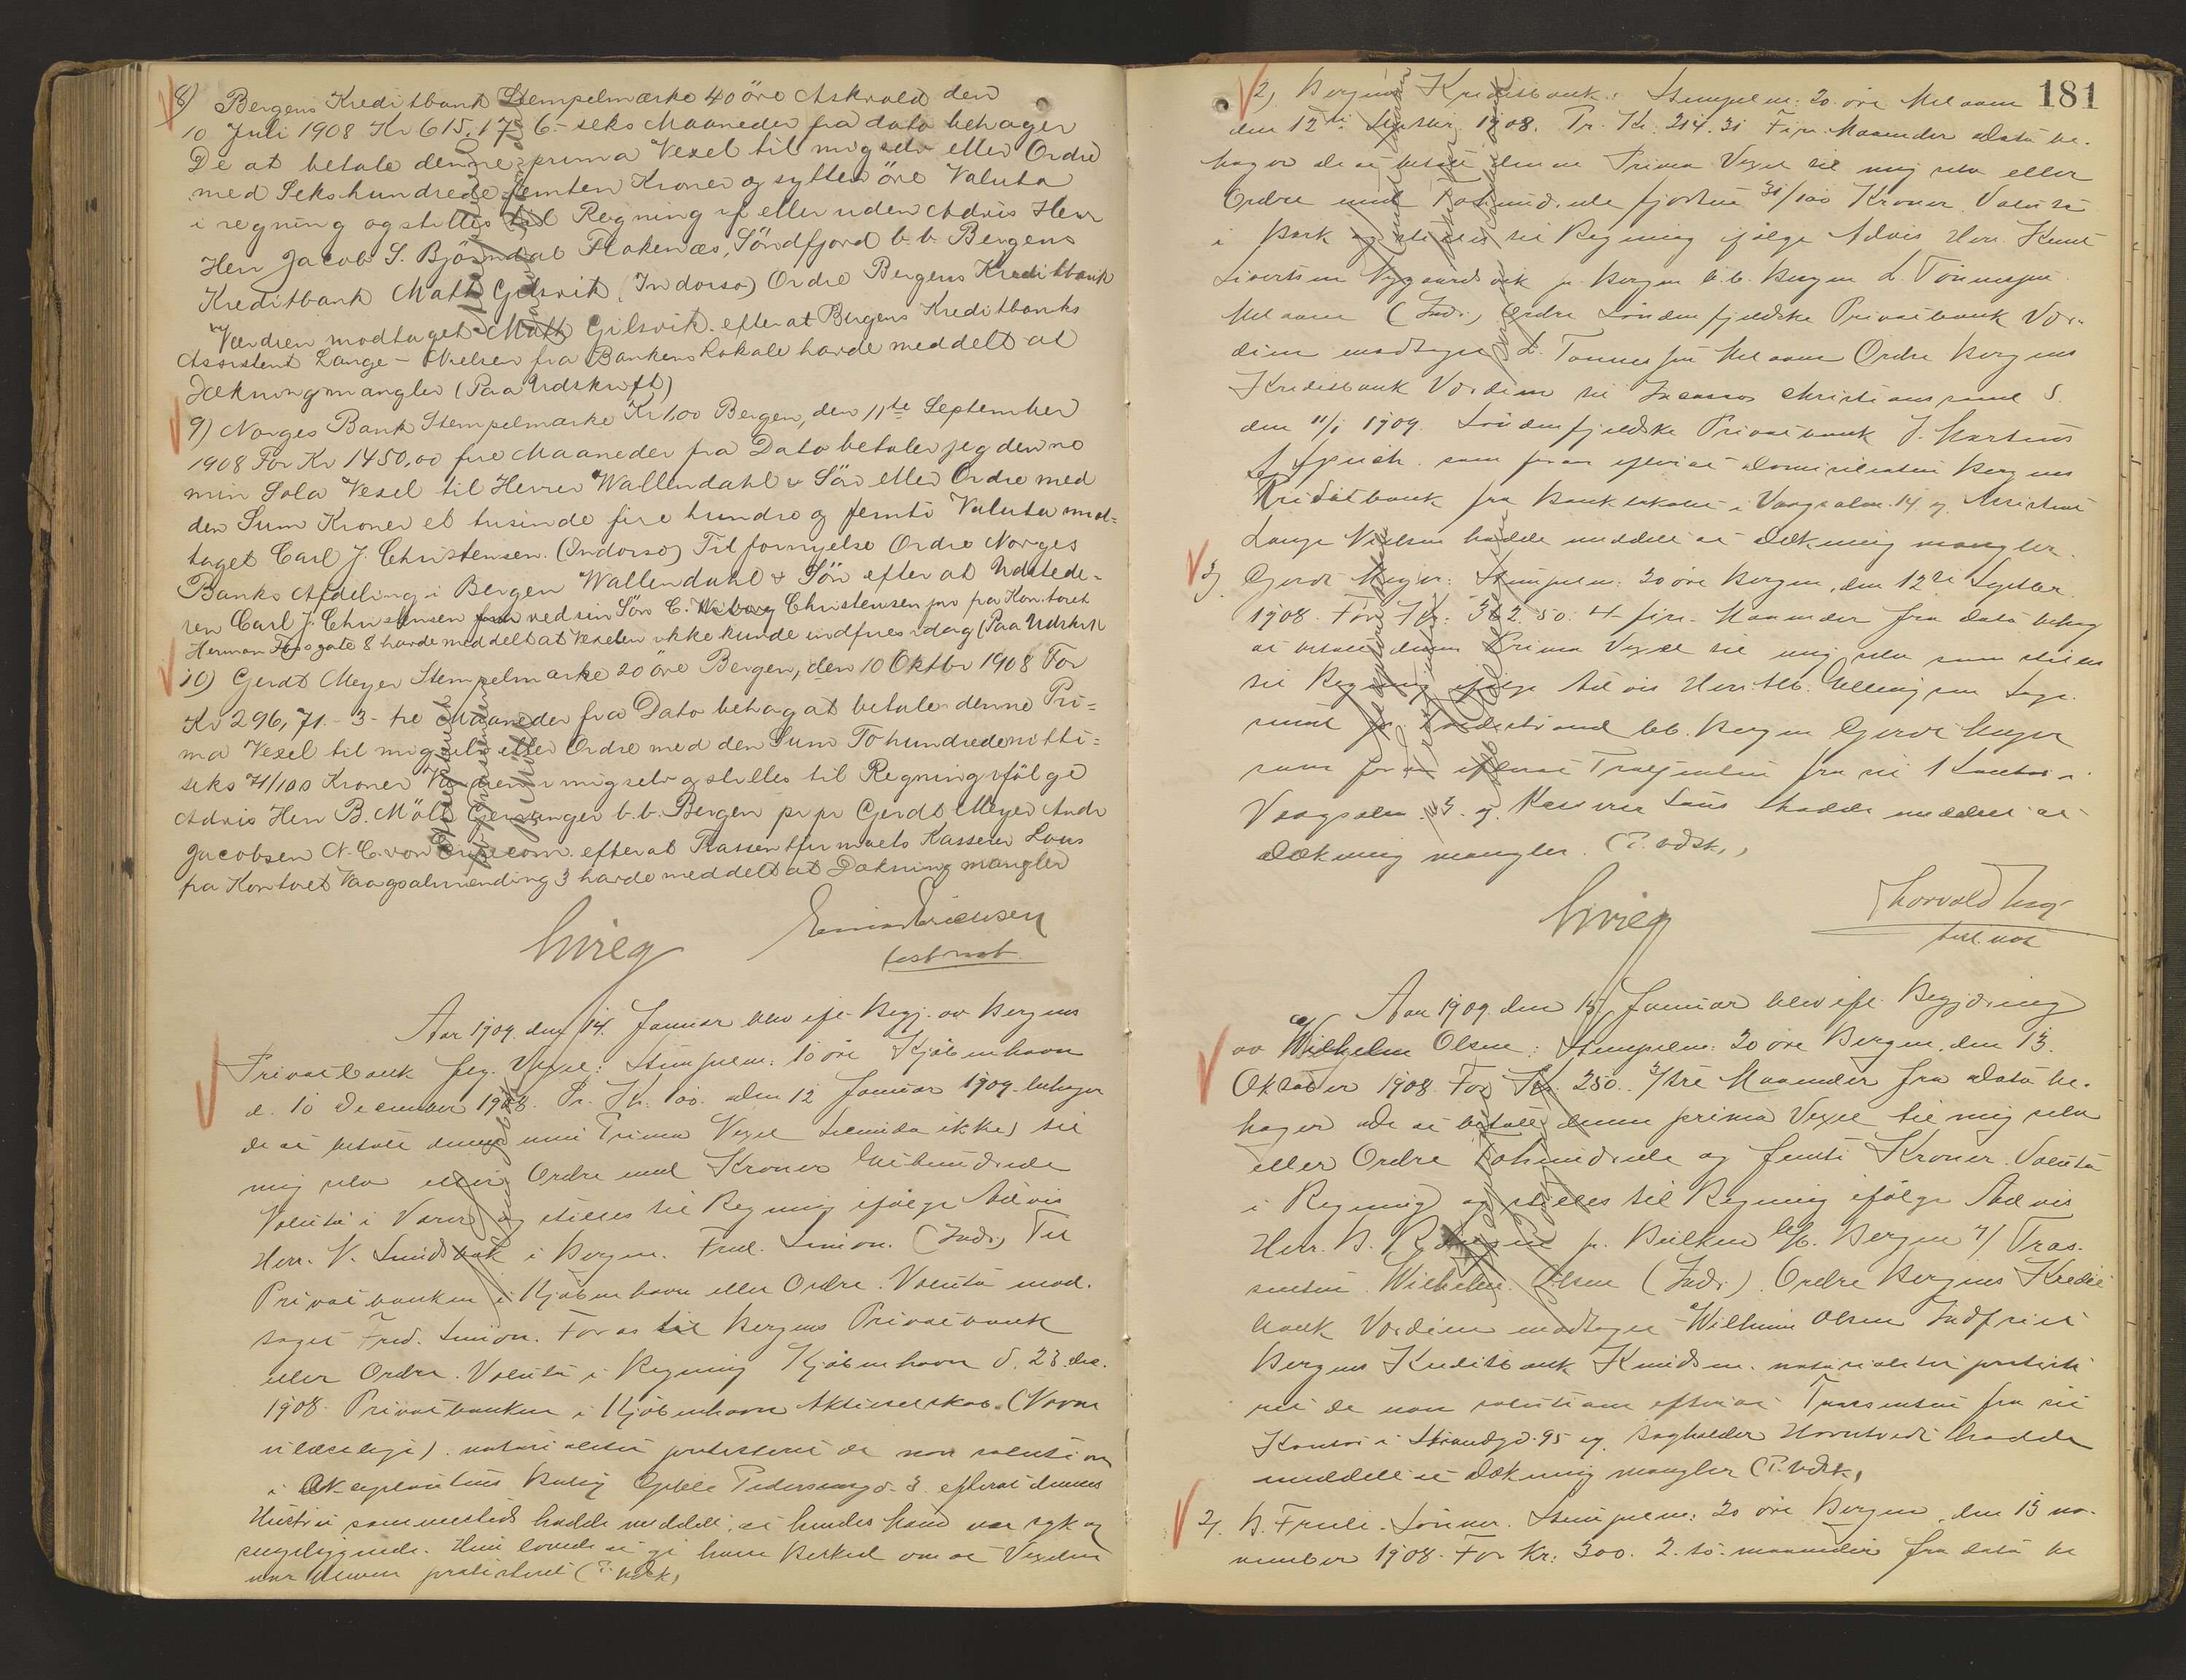 8) Bergens Kreditbank Stempelmærke 40 öre Askvold den
10 Juli 1908 Kr 615,17 6- seks Maaneder fra dato behager
De at betale denne prima Vexel til mig selv eller Ordre
med Sekshundrede femten Kroner og sytten öre Valuta
i regning og stilles til Regning if eller uden Advis Herr
Herr Jacob S. Björndal Flokenæs, Söndfjord b. b. Bergens
Kreditbank Math Gilsvik (Indorso) Ordre Bergens Kreditbank
Værdien modtaget Math Gilsvik efter at Bergens Kreditbanks
Assistent Lange-Nielsen fra Bankens Lokale havde meddelt at
Dækning mangler (Paa Udskrift)
9) Norges Bank Stempelmærke Kr 1,00 Bergen, den 11te September
1908 For Kr 1450,00 fire Maaneder fra Dato betaler jeg denne
min Sola Vexel til Herrer Wallendahl & Sön eller Ordre med
den Sum Kroner et tusinde fire hundre og femti Valuta mod=
taget Carl J. Christensen. (Indorso) Til fornyelse Ordre Norges
Banks Afdeling i Bergen Wallendahl & Sön efter at Udstede=
ren Carl J. Christensen ved sin Sön C. Christensen jnr fra Kontoret
Herman Fossgate 8 havde meddelt at Vexelen ikke kunde indfries idag (Paa Udskrift
10) Gerdt Meyer Stempelmærke 20 öre Bergen, den 10 Oktbr 1908 For
Kr 296,71.- 3- tre Maaneder fra Dato behag at betale denne Pri=
ma Vexel til mig selv eller Ordre med den Sum To hundredenitti=
seks 71/100 Kroner Værdien i mig selv og stilles til Regning ifölge
Advis Herr B. Möll Gjersunger b. b. Bergen pr pr Gerdt Meyer Andr
Jacobsen N. C. von efter at Trassentfirmaets Kasserer Lous
fra Kontoret Vaagsalmending 3 havde meddelt at Dækning mangler
Einar Ericksen
test. not.
Aar 1909 den 14. Januar blev efl. Begj. av Bergens
Privatbank flg. Vexel: Stempelm: 10 öre Kjöbenhavn
d. 10 December 1908. Pr. Kr. 100. den 12 Januar 1909 behager
de at betale denne min Prima Vexel (Secunda ikke) til
mig selv eller Ordre med Kroner Ethundrede
Valuta i Varer og stilles til Regning ifölge Advis
Herr. V. Smidsbak i Bergen. Fred. Simon. (Indr.) Til
Privatbanken i Kjöbenhavn eller Ordre. Valuta mod-
taget Fred. Simon. For os til Bergens Privatbank
eller Ordre. Valuta i Regning Kjöbenhavn d. 23. dec.
1908. Privatbanken i Kjöbenhavn Aktieselskab. (Navne
ulæselige). notarialiter protesteret de non solution
i Akceptantens Bolig Pedersensgd. 3. efterat dennes
Hustru sammesteds hadde meddelt, at hendes mand var syk og
sengeliggende. Hun lovede at gi ham besked om at Vexelen
var bleven protesteret (P. Udsk,
181
2) Bergens Kreditbank: Stempelm: 20 öre
den 12te Septbr. 1908. Pr. Kr. 214.31 Fire Maaneder Data be-
hager de at betale denne Prima Vexel til mig selv eller
Ordre med Tohundrede fjorten 31/100 Kroner. Valuta
i Bark og stilles til Regning ifölge Advis Herr. Knut
Sivertsen Nygaardsvik pr. Bergen b. b. Bergen L. Tönnesen
(Indr.) Ordre Söndenfjeldske Privatbank Vær-
dien modtaget L. Tönnesen Ordre Bergens
Kreditbank Værdien til Incasso Christianssand S.
den 11/1 1909. Söndenfjeldske Privatbank J. Martens
som foran efterat Domiciliaten Bergens
Kreditbank fra Banklokalet i Vaagsalm. 14 og Assistent
Lange Nielsen hadde meddelt at dækning mangler.
3) Gerdt Meyer: Stempelm: 20 öre Bergen, den 12te Septbr.
1908. For Kr: 362.50. 4- fire Maaneder fra Data behag
at betale denne Prima Vexel til mig selv som stilles
til Regning ifölge Advis Herr. Elling Sage-
bb. Bergen Gerdt Meyer
som foran efterat Trassenten fra sit Kontor i
Vaagsalm. 3. og Kasserer Lous hadde meddelt at
dækning mangler. (P. Udsk.,
Thorvald
test. not
Aar 1909 den 15/ Januar blev efl. Begjæring
av Wilhelm Olsen: Stempelm: 20 öre Bergen, den 13.
Oktober 1908. For Kr. 250. 3/tre Maaneder fra data be-
hager de at betale denne prima Vexel til mig selv
eller Ordre Tohundrede og femti Kroner. Valuta
i Regning og stilles til Regning ifölge Advis
Herr. B. pr. Bulken b/b. Bergen Tras-
senten Wilhelm Olsen (Indr.) Ordre Bergens Kredit
bank Værdien modtaget Wilhelm Olsen Indfriet
Bergens Kreditbank Knudsen. notarialiter proteste-
ret de non solutione efterat Trassenten fra sit
Kontor i Strandgd. 95 og bogholder hadde
meddelt at dækning mangler (P. Udsk,
2/. B. Friele Sönner. Stempelm: 20 öre Bergen, den 13 no-
vember 1908. For Kr: 300. 2. to maaneder fra data be